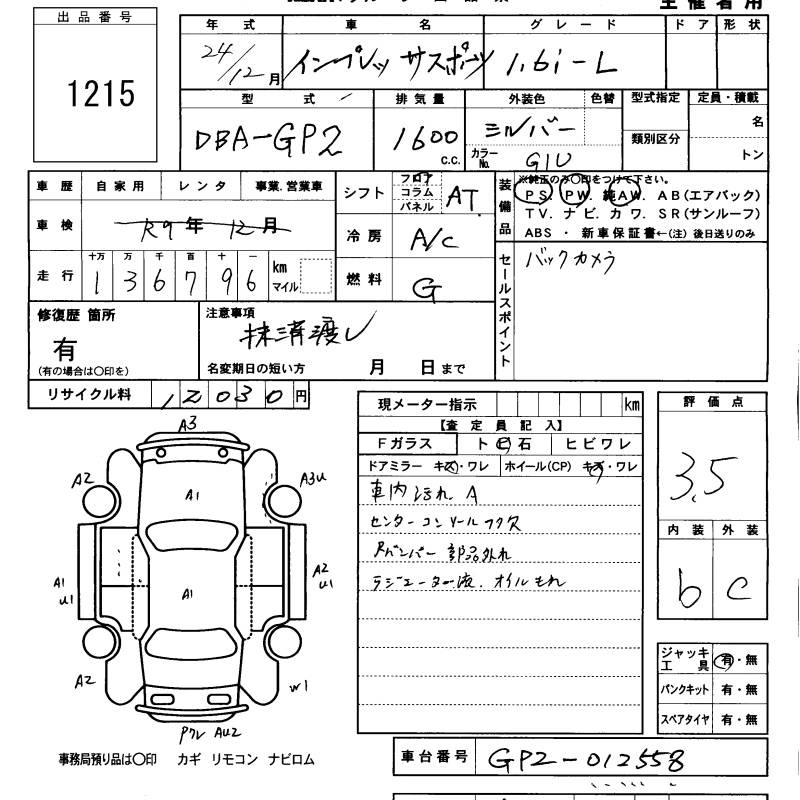 主催者用
出品番号
1215
年式 車名 グレード ドア 形状
24/12月 インプレッサスポーツ 1.6i-L
型式 排気量 外装色 色替 型式指定 定員・積載
DBA-GP2 1600 c.c. シルバー 類別区分 名
カラーNo. G1U トン
車歴 自家用 レンタ 事業.営業車
車検 R9年12月
走行 十万 万 千 百 十 一 km マイル
1 3 6 7 9 6
シフト フロア コラム パネル AT
冷房 A/C
燃料 G
装備品 ※純正のみ〇印をつけて下さい。
PS. PW. 純AW. AB(エアバック)
TV. ナビ. カワ. SR(サンルーフ)
ABS ・ 新車保証書←(注) 後日送りのみ
セールスポイント バックカメラ
修復歴 箇所
有
(有の場合は〇印を)
注意事項
抹消渡し
名変期日の短い方 月 日まで
リサイクル料 12030円
現メーター指示 km
【査定員記入】
Fガラス ト ビ 石 ヒビワレ
ドアミラー キズ・ワレ ホイール(CP) キズ・ワレ
車内汚れ A
センターコンソールフタ欠
Rバンパー 部品外れ
ラジエーター液. オイルもれ
評価点
3.5
内装 外装
b c
A3
A2 A1 A3U
A1 U1 A1 A2 U1
A2 W1
Pワレ AU2
ジャッキ工具 有・無
パンクキット 有・無
スペアタイヤ 有・無
事務局預り品は〇印 カギ リモコン ナビロム
車台番号 GP2-012558